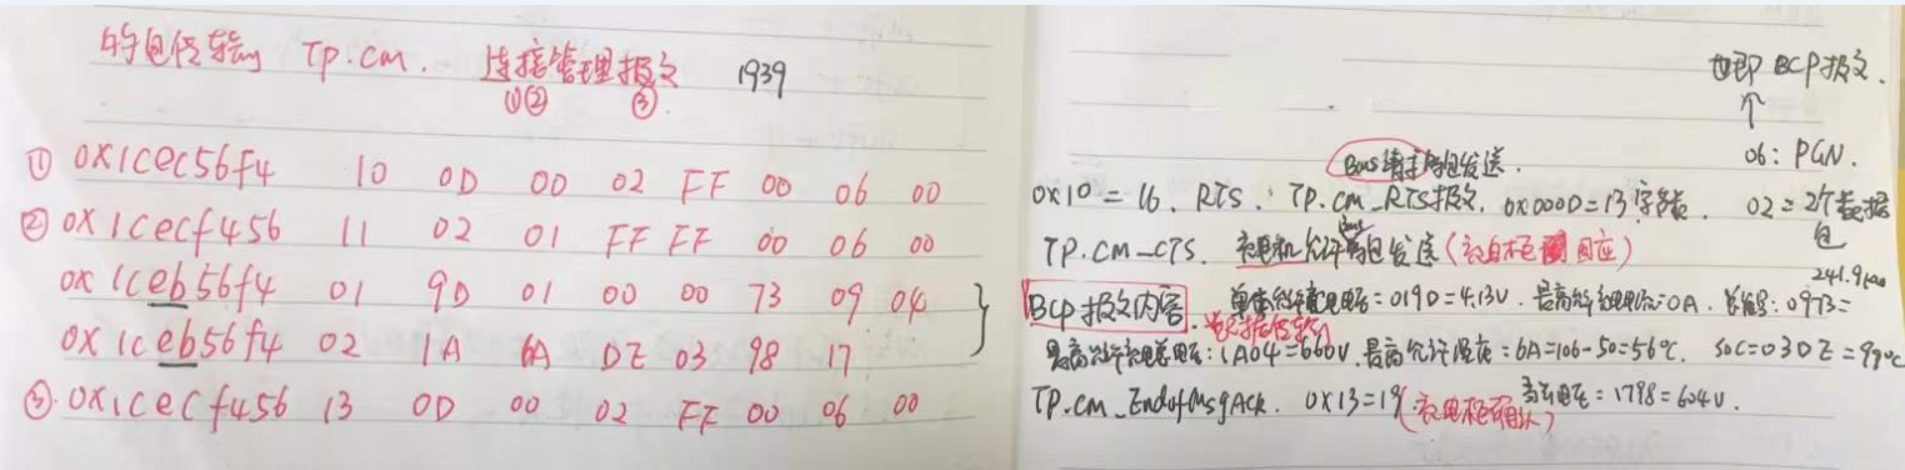 的包传输 TP.CM. 连接管理报文 1939
①② ③.
① 0x1cec56f4 10 0D 00 02 FF 00 06 00
② 0x1cecf456 11 02 01 FF FF 00 06 00
0x1ceb56f4 01 9D 01 00 00 73 09 04
0x1ceb56f4 02 1A 6A DE 03 98 17
③. 0x1cecf456 13 0D 00 02 FF 00 06 00
即 BCP报文.
个
06: PGN.
BMS请求多包发送.
0x10 = 16. RTS: TP.CM_RTS报文. 0x000D=13字节. 02=2个数据
包
TP.CM_CTS. 充电机允许多包发送(充电桩回应)
241.9
BCP报文内容. 单体允许充电电压=019D=4.13V. 最高允许充电电流=0A. 总能量: 0973=
数据传输
最高允许充电总电压: 1A04=666V. 最高允许温度=6A=106-50=56℃. SOC=03DE=99℃
TP.CM_EndofMsgAck. 0x13=19(充电桩确认) 当前电压=1798=604V.